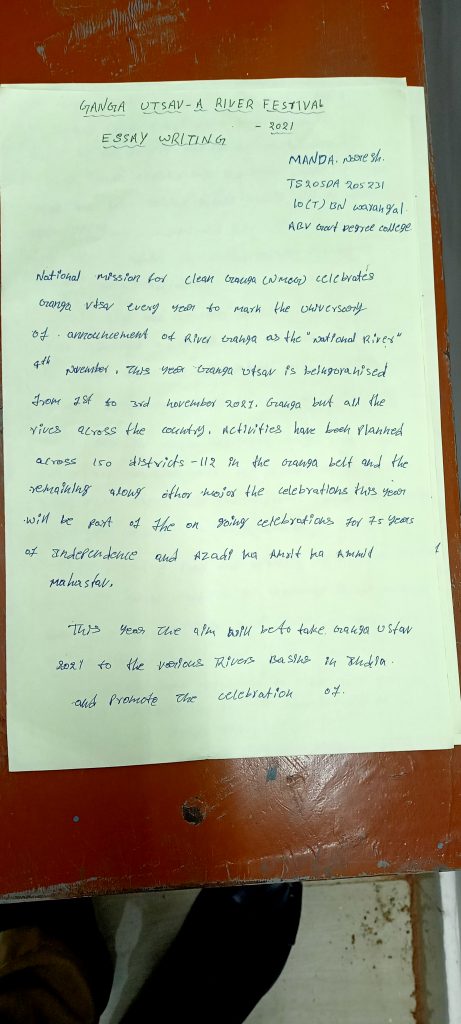 GANGA UTSAV-A RIVER FESTIVAL
- 2021
ESSAY WRITING
MANDA. Naresh.
TS20SDA 205231
10(T) BN Warangal.
ABV Govt Degree college
National mission for clean Ganga (NMCG) celebrates
Ganga Utsav every year to mark the universary
of . announcement of River Ganga as the "National River"
4th November. This year Ganga Utsav is beingoranised
from 1st to 3rd november 2021. Ganga but all the
rives across the country. Activities have been planned
across 150 districts - 112 in the Ganga belt and the
remaining along other major the celebrations this year
will be part of the on going celebrations for 75 years
of Independence and Azadi ka Amrit ka
Mahastav.
This year the aim will beto take Ganga Ustav
2021 to the various Rivers Basins in India.
and Promote the celebration of.